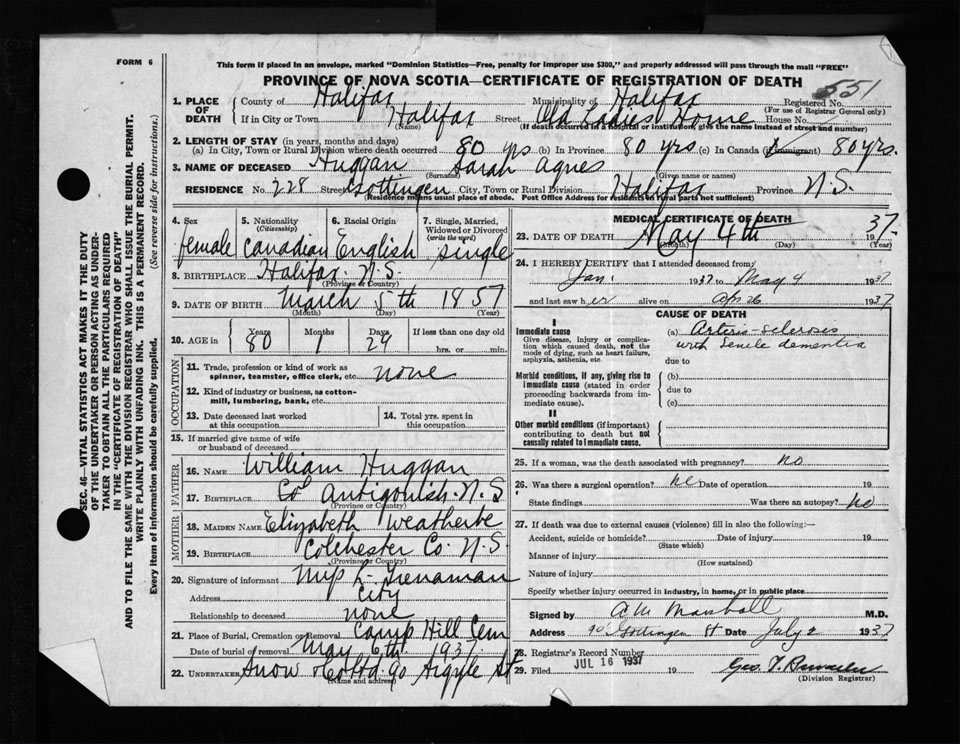 FORM 6
This form if placed in an envelope, marked "Dominion Statistics—Free, penalty for improper use $300," and properly addressed will pass through the mail "FREE"
PROVINCE OF NOVA SCOTIA—CERTIFICATE OF REGISTRATION OF DEATH
551
1. PLACE OF DEATH County of Halifax Municipality of Halifax Registered No.
(For use of Registrar General only)
If in City or Town Halifax Street Old Ladies Home House No.
(Name) (If death occurred in a hospital or institution, give the name instead of street and number)
2. LENGTH OF STAY (in years, months and days)
(a) In City, Town or Rural Division where death occurred 80 yrs (b) In Province 80 yrs (c) In Canada (if immigrant) 80 yrs.
3. NAME OF DECEASED Huggan Sarah Agnes
(Surname) (Given name or names)
RESIDENCE No. 228 Street Gottingen City, Town or Rural Division Halifax Province N.S.
(Residence means usual place of abode. Post Office Address for residents in rural parts not sufficient)
4. Sex 5. Nationality (Citizenship) 6. Racial Origin 7. Single, Married, Widowed or Divorced (write the word)
female Canadian English single
8. BIRTHPLACE Halifax. N.S.
(Province or Country)
9. DATE OF BIRTH March 5th 1857
(Month) (Day) (Year)
10. AGE in Years Months Days If less than one day old
80 1 29 hrs. or min.
OCCUPATION
11. Trade, profession or kind of work as spinner, teamster, office clerk, etc. none
12. Kind of industry or business, as cotton-mill, lumbering, bank, etc.
13. Date deceased last worked at this occupation
14. Total yrs. spent in this occupation
15. If married give name of wife or husband of deceased
FATHER
16. NAME William Huggan
17. BIRTHPLACE Co Antigonish. N.S
(Province or Country)
MOTHER
18. MAIDEN NAME Elizabeth Weatherbe
19. BIRTHPLACE Colchester Co. N.S.
(Province or Country)
20. Signature of informant L. Trenaman
Address City
Relationship to deceased none
21. Place of Burial, Cremation or Removal Camp Hill Cem
Date of burial or removal May 6th 1937.
22. UNDERTAKER Snow & Co Ltd 90 Argyle St
(Name and address)
MEDICAL CERTIFICATE OF DEATH
23. DATE OF DEATH May 4th 1937.
(Month) (Day) (Year)
24. I HEREBY CERTIFY that I attended deceased from
Jan. 1937 to May 4 1937
and last saw her alive on Apr 26 1937
CAUSE OF DEATH
I
Immediate cause
Give disease, injury or complication which caused death, not the mode of dying, such as heart failure, asphyxia, asthenia, etc.
(a) Arterio-sclerosis
with Senile dementia
due to
Morbid conditions, if any, giving rise to immediate cause (stated in order proceeding backwards from immediate cause).
(b)
due to
(c)
II
Other morbid conditions (if important) contributing to death but not causally related to immediate cause.
25. If a woman, was the death associated with pregnancy? no
26. Was there a surgical operation? no Date of operation 19
State findings Was there an autopsy? no
27. If death was due to external causes (violence) fill in also the following:—
Accident, suicide or homicide? Date of injury 19
(State which)
Manner of injury
(How sustained)
Nature of injury
Specify whether injury occurred in industry, in home, or in public place
Signed by A M Marshall M.D.
Address 90 Gottingen St Date July 2 1937
28. Registrar's Record Number
29. Filed JUL 16 1937 19
(Division Registrar)
SEC. 46—VITAL STATISTICS ACT MAKES IT THE DUTY
OF THE UNDERTAKER OR PERSON ACTING AS UNDER-
TAKER TO OBTAIN ALL THE PARTICULARS REQUIRED
IN THE "CERTIFICATE OF REGISTRATION OF DEATH"
AND TO FILE THE SAME WITH THE DIVISION REGISTRAR WHO SHALL ISSUE THE BURIAL PERMIT.
WRITE PLAINLY WITH UNFADING INK. THIS IS A PERMANENT RECORD.
Every item of information should be carefully supplied. (See reverse side for instructions.)